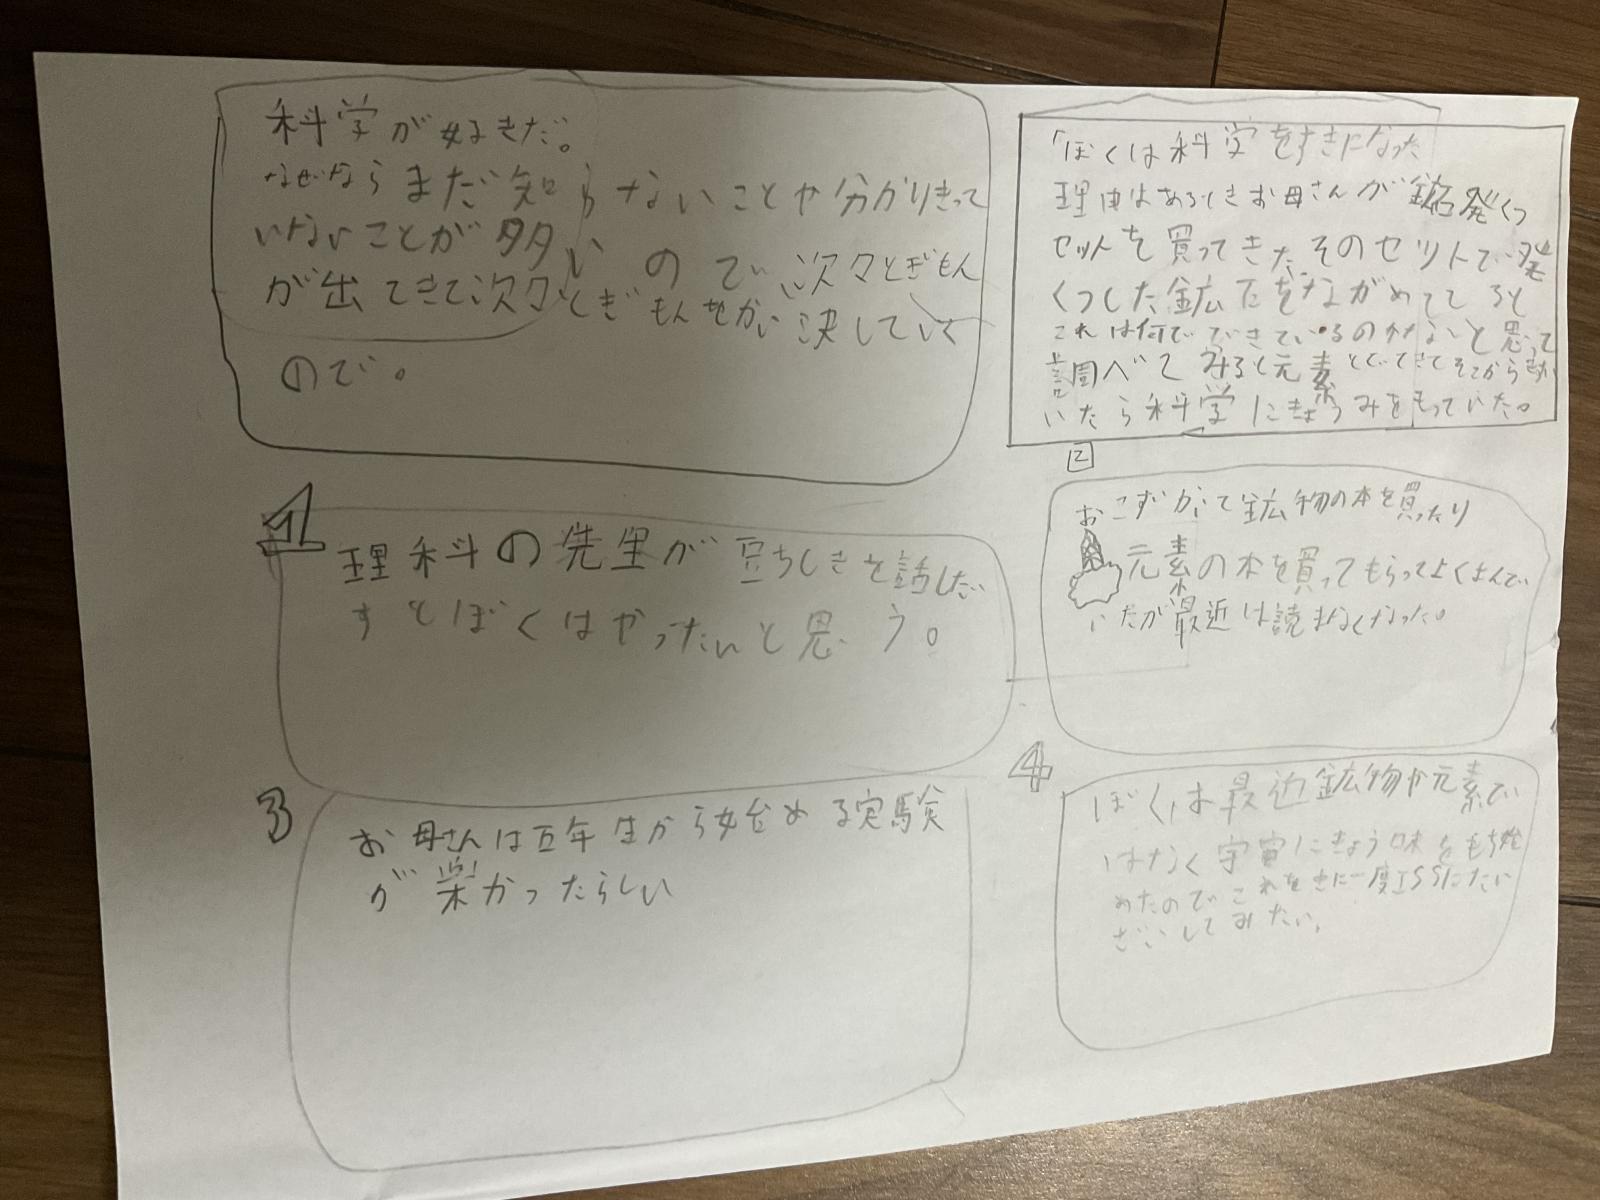 科学が好きだ。
なぜならまだ知らないことや分かりきって
いないことが多いので次々とぎもん
が出てきて次々とぎもんをかい決していく
ので。
ぼくは科学をすきになった
理由はあるときお母さんが鉱石発くつ
セットを買ってきた。そのセットで発
くつした鉱石をながめてると
これは何でできているのかなと思って
調べてみると元素とでてきてそこから気が
いたら科学にきょうみをもっていた。
1
理科の先生が豆ちしきを話しだ
すとぼくはやったぁと思う。
2
おこずかいで鉱物の本を買ったり
元素の本を買ってもらってよくよんで
いたが最近は読まなくなった。
3
お母さんは五年生から始める実験
が楽かったらしい
4
ぼくは最近鉱物や元素で
はなく宇宙にきょう味をもち始
めたのでこれをきに一度ISSにたい
ざいしてみたい。